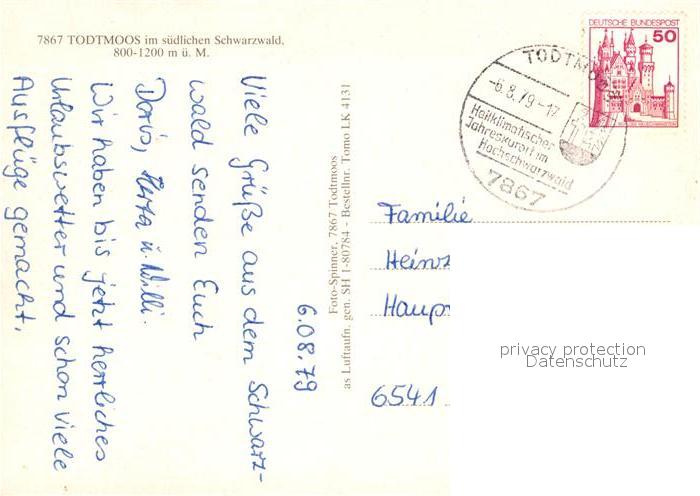 7867 TODTMOOS im südlichen Schwarzwald,
800-1200 m ü. M.
6.08.79
Viele Grüße aus dem Schwarz-
wald senden Euch
Doris, Herta u. Willi.
Wir haben bis jetzt herrliches
Urlaubswetter und schon viele
Ausflüge gemacht.
Foto-Spinner, 7867 Todtmoos
as Luftaufn. gen. SH 1-80784 - Bestellnr. Tomo LK 4131
DEUTSCHE BUNDESPOST
50
TODTMOOS
-6.8.79-17
Heilklimatischer
Jahreskurort im
Hochschwarzwald
7867
Familie
Heinz
Haup
6541
privacy protection
Datenschutz